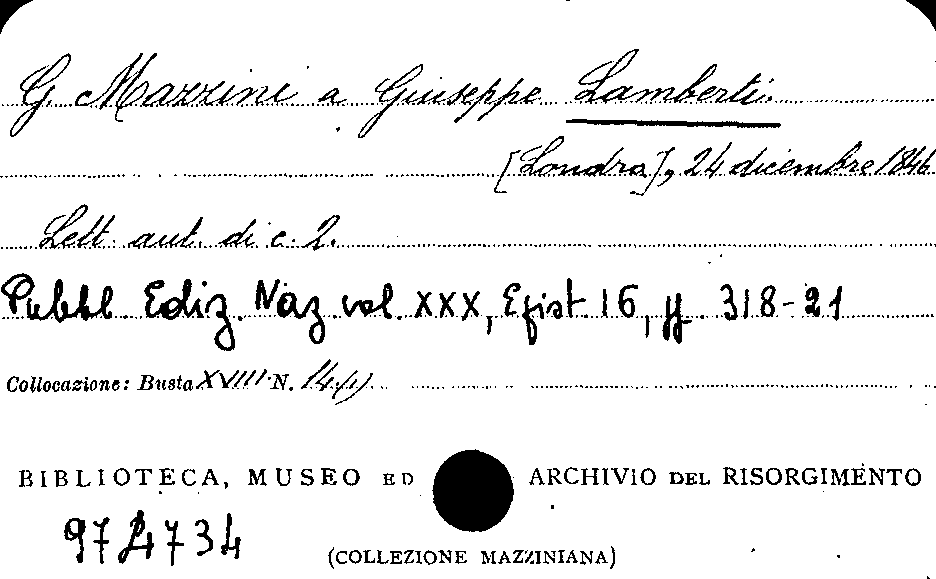 G. Mazzini a Giuseppe Lamberti.
[Londra], 24 dicembre 1846
Lett. aut. di c. 2.
Pubbl. Ediz. Naz. vol. XXX, Epist. 16, pp. 318-21
Collocazione: Busta XVIII N. 14(1)
BIBLIOTECA, MUSEO ED ARCHIVIO DEL RISORGIMENTO
974734
(COLLEZIONE MAZZINIANA)